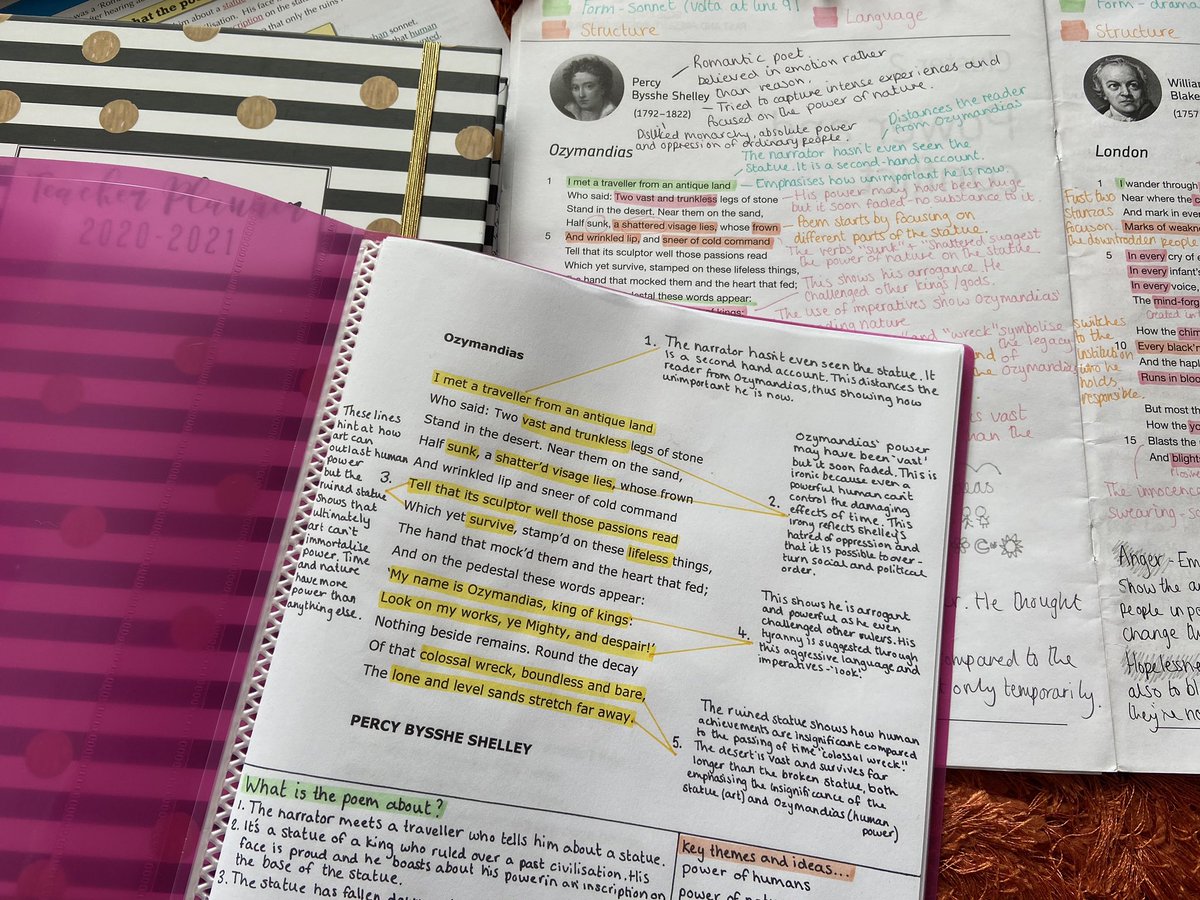 was a 'Ro
hearing
what the po
about a statue
His face
on the
that only the ruins
han sonnet.
that human
Teacher Planner
2020-2021
Form - Sonnet (volta at line 9)
Language
Structure
Percy
Bysshe Shelley
(1792–1822)
Romantic poet
believed in emotion rather
than reason.
Tried to capture intense experiences and
focused on the power of nature.
Disliked monarchy, absolute power
and oppression of ordinary people.
Distances the reader
from Ozymandias
The narrator hasn't even seen the
statue. It is a second-hand account.
Emphasises how unimportant he is now.
Ozymandias
1 I met a traveller from an antique land
Who said: Two vast and trunkless legs of stone
Stand in the desert. Near them on the sand,
Half sunk, a shattered visage lies, whose frown
5 And wrinkled lip, and sneer of cold command
Tell that its sculptor well those passions read
Which yet survive, stamped on these lifeless things,
hand that mocked them and the heart that fed;
destal these words appear:
of kings:
His power may have been huge
but it soon faded - no substance to it
Poem starts by focusing on
different parts of the statue.
The verbs "sunk" + "shattered suggest
the power of nature on the statue.
This shows his arrogance. He
challenged other kings/gods.
The use of imperatives show Ozymandias'
nature
and "wreck" symbolise
the legacy
and of
the Ozymandias
vast
than the
eas
r. He thought
ompared to the
t only temporarily.
Form - drama
Structure
William
Blake
(1757
London
1 I wander through
Near where the c
And mark in ever
Marks of weakne
5 In every cry of e
In every infant's
In every voice,
The mind-forg
Created in
How the chim
10 Every black'n
And the hapl
Runs in bloo
But most th
How the yo
15 Blasts the
And blight
First two
stanzas
focus on
the downtrodden people
switches
to the
institution
who he
holds
responsible.
The innocence
swearing - s
Anger - Em
Show the a
People in po
change th
Hopelessne
also to bl
they're no
Ozymandias
I met a traveller from an antique land
Who said: Two vast and trunkless legs of stone
Stand in the desert. Near them, on the sand,
Half sunk, a shatter'd visage lies, whose frown
And wrinkled lip and sneer of cold command
Tell that its sculptor well those passions read
Which yet survive, stamp'd on these lifeless things,
The hand that mock'd them and the heart that fed;
And on the pedestal these words appear:
'My name is Ozymandias, king of kings:
Look on my works, ye Mighty, and despair!'
Nothing beside remains. Round the decay
Of that colossal wreck, boundless and bare,
The lone and level sands stretch far away.
PERCY BYSSHE SHELLEY
1. The narrator hasn't even seen the statue. It
is a second hand account. This distances the
reader from Ozymandias, thus showing how
unimportant he is now.
2. Ozymandias' power
may have been 'vast'
but it soon faded. This is
ironic because even a
powerful human can't
control the damaging
effects of time. This
irony reflects Shelley's
hatred of oppression and
that it is possible to over-
turn social and political
order.
3. These lines
hint at how
art can
outlast human
power
but the
ruined statue
shows that
ultimately
art can't
immortalise
power. Time
and nature
have more
power than
anything else.
4. This shows he is arrogant
and powerful as he even
challenged other rulers. His
tyranny is suggested through
this aggressive language and
imperatives - 'look.'
5. The ruined statue shows how human
achievements are insignificant compared
to the passing of time "colossal wreck".
The desert is vast and survives far
longer than the broken statue, both
emphasising the insignificance of the
statue (art) and Ozymandias (human
power)
What is the poem about?
1. The narrator meets a traveller who tells him about a statue.
2. It's a statue of a king who ruled over a past civilisation. His
face is proud and he boasts about his power in an inscription on
the base of the statue.
3. The statue has fallen
Key themes and ideas...
power of humans
power of nat